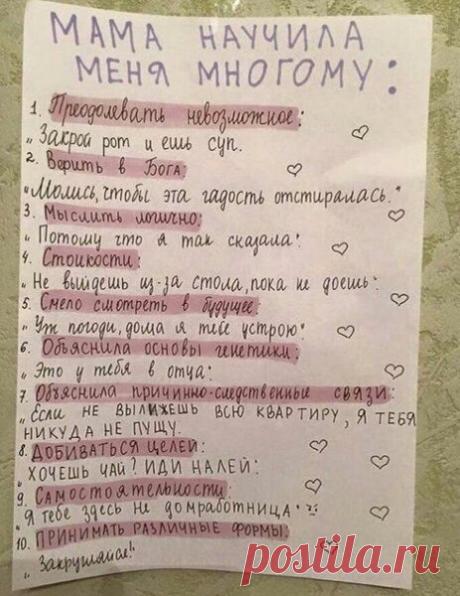 МАМА НАУЧИЛА
МЕНЯ МНОГОМУ:
1. Преодолевать невозможное:
„Закрой рот и ешь суп.
2. Верить в Бога:
„Молись, чтобы эта гадость отстиралась."
3. Мыслить логично:
„Потому что я так сказала"
4. Стойкости:
„Не выйдешь из-за стола, пока не доешь"
5. Смело смотреть в будущее:
„Уж погоди, дома я тебе устрою"
6. Объяснила основы генетики:
„Это у тебя в отца"
7. Объяснила причинно-следственные связи:
„ЕСЛИ НЕ ВЫЛИЖЕШЬ ВСЮ КВАРТИРУ, Я ТЕБЯ
НИКУДА НЕ ПУЩУ.
8. ДОБИВАТЬСЯ ЦЕЛЕЙ:
„ХОЧЕШЬ ЧАЙ? ИДИ НАЛЕЙ"
9. Самостоятельности:
„Я тебе здесь не домработница"
10. ПРИНИМАТЬ РАЗЛИЧНЫЕ ФОРМЫ:
„Закругляйся!"
postila.ru